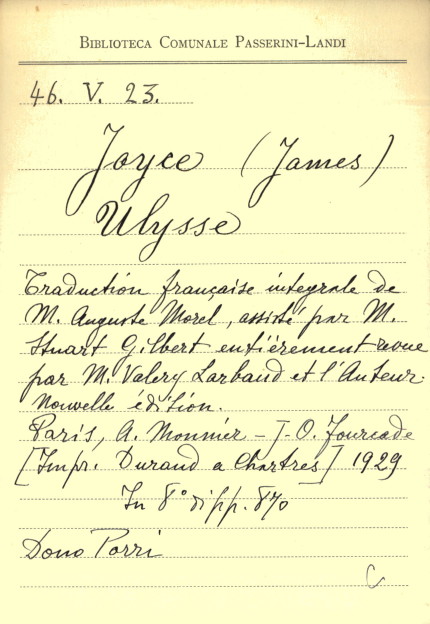 BIBLIOTECA COMUNALE PASSERINI-LANDI
46. V. 23.
Joyce (James)
Ulysse
Traduction française intégrale de
M. Auguste Morel, assisté par M.
Stuart Gilbert entiérement revue
par M. Valery Larbaud et l'Auteur.
Nouvelle édition.
Paris, A. Monnier - J-O. Fourcade
[Impr. Durand a Chartres] 1929
In 8° di pp. 870
Dono Porri
C